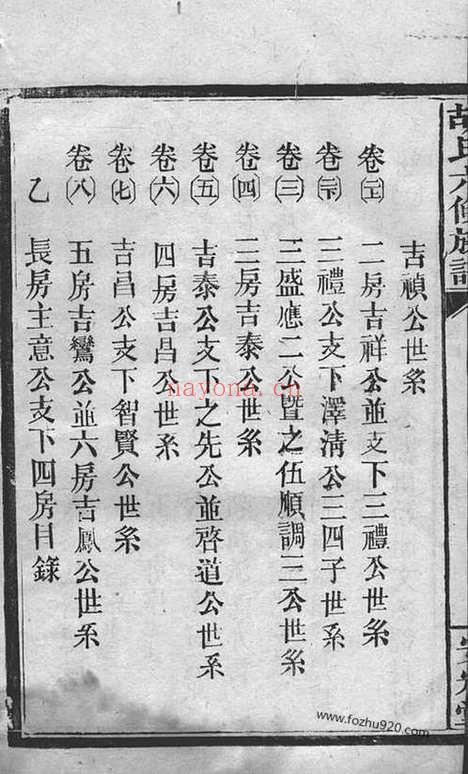 胡氏六修族譜
吉禎公世系
卷(二上) 二房吉祥公並支下三禮公世系
卷(二下) 三禮公支下澤清公三四子世系
卷(三) 三盛應二公暨之伍順調三公世系
卷(四) 三房吉泰公世系
卷(五) 吉泰公支下之先公並啓道公世系
卷(六) 四房吉昌公世系
卷(七) 吉昌公支下智賢公世系
卷(八) 五房吉鸞公並六房吉鳳公世系
乙 長房主意公支下四房目錄
nayona.cn
www.fozhu920.com